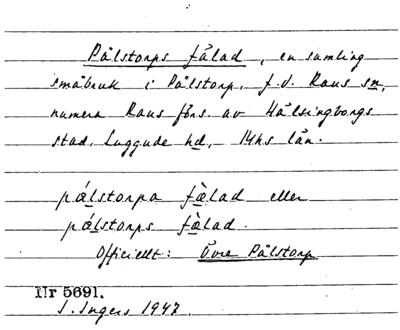 Pålstorps fälad, en samling
småbruk i Pålstorp, f.d. Raus sn,
numera Raus förs. av Hälsingborgs
stad, Luggude hd, Mhs län.
pǽlstorpa fæ̀lad eller
pǽlstorps fæ̀lad.
Officiellt: Övre Pålstorp
Nr 5691.
I. Ingers 1947.